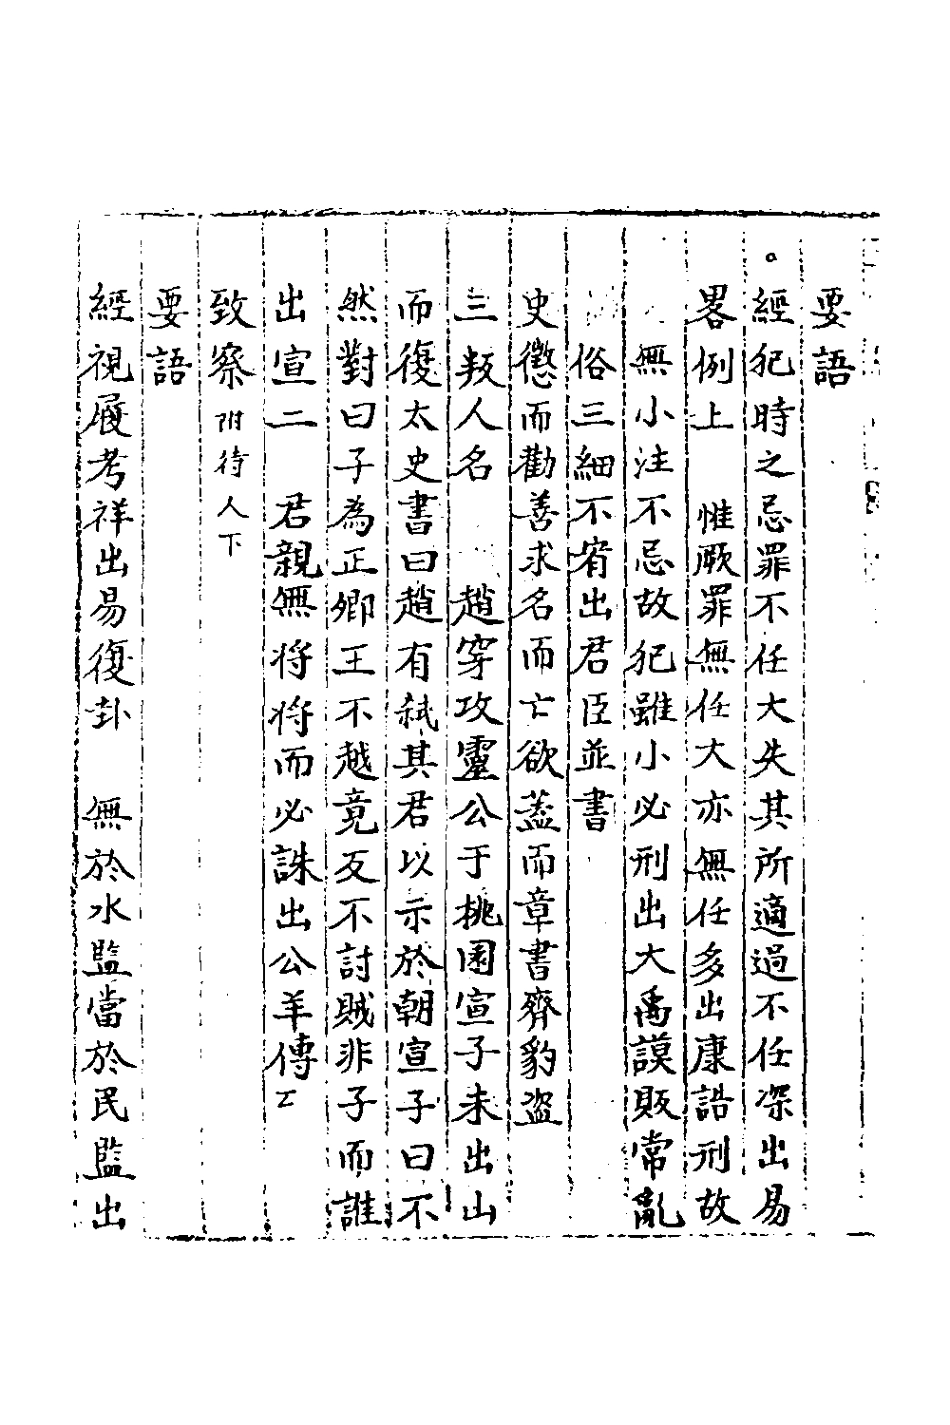 要語
經犯時之忌罪不任大失其所適過不任深出易
畧例上　惟厥罪無任大亦無任多出康誥刑故
無小注不忌故犯雖小必刑出大禹謨敗常亂
俗三細不宥出君臣並書
史懲而勸善求名而亡欲葢而章書齊豹盗
三叛人名　趙穿攻靈公于桃園宣子未出山
而復太史書曰趙有弑其君以示於朝宣子曰不
然對曰子為正卿王不越竟反不討賊非子而誰
出宣二　君親無将将而必誅出公羊傳
致察附待人下
要語
經視履考祥出易復卦　無於水監當於民監出